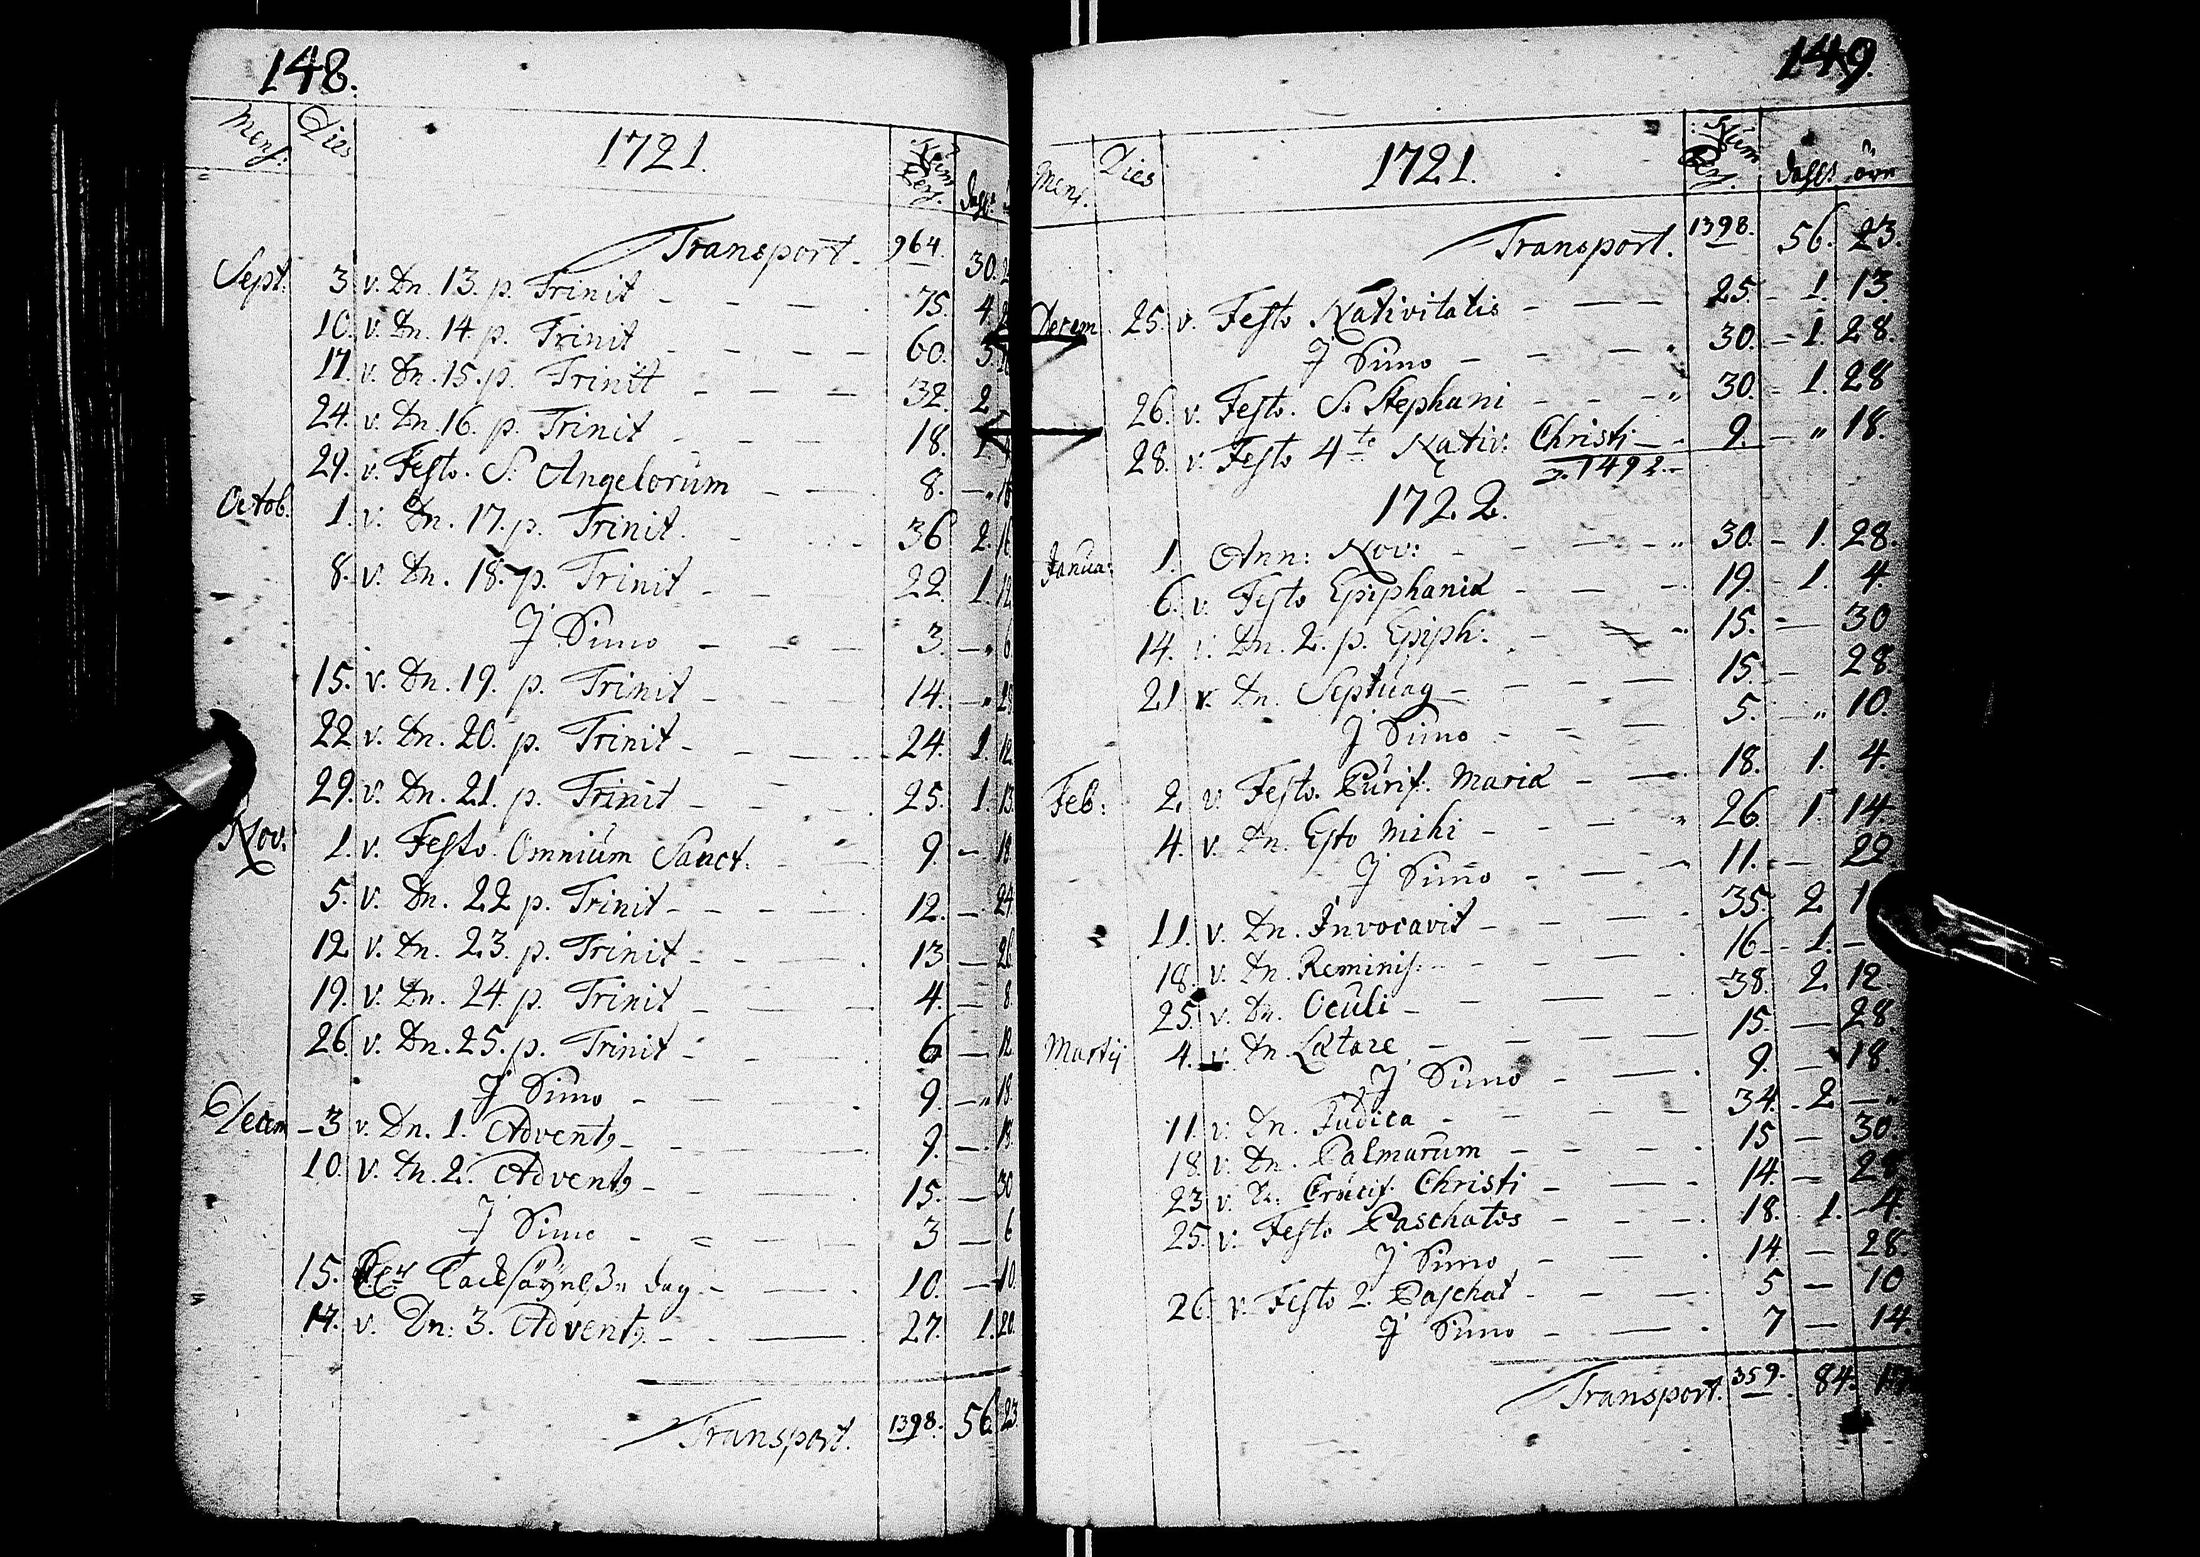 148.
Mens: Dies 1721. Num Pers. dahlr
Transport. 964. 30.
Sept. 3 v. Dn. 13. p. Trinit - - - 75. 4.
10. v. Dn. 14. p. Trinit - - - - 60. 3.
17. v. Dn. 15. p. Trinit - - - 32. 2
24. v. Dn. 16. p. Trinit - - - 18. 1
29. v. Festo. S. Angelorum - - 8. - „ 16
Octob. 1. v. Dn. 17. p. Trinit. - - - 36 2. 16
8. v. Dn. 18. p. Trinit - - - 22. 1. 12
J Simo - - - 3. - „ 6
15. v. Dn. 19. p. Trinit - - - 14. - „ 28
22 v. Dn. 20. p. Trinit - - - 24. 1. 12
29. v. Dn. 21. p. Trinit - - - 25. 1. 13
Nov: 1. v. Festo Omnium Sanct. - - 9. - 18
5. v. Dn. 22 p. Trinit - - - - 12. - 24
12 v. Dn. 23. p. Trinit - - - 13 - 26
19. v. Dn. 24. p. Trinit - - - 4. - 8
26. v. Dn. 25. p. Trinit - - - 6 - 12
J Simo - - - 9. - „ 18.
Decem - 3 v. Dn. 1. Advent9 - - - 9. - 18
10. v. Dn. 2. Advent9 - - - 15. - 30
J Simo - = - 3 - 6
15. dag - - - 10. - 10.
17. v. Dn: 3. Advent9 - - - 27. 1. 20.
Transport. 1398. 56. 23
149.
Mens. Dies 1721. Num Pers. dahlr öre
Transport. 1398. 56. 23.
Decem. 25. v. Festo Nativitatis - - - 25 - 1. 13.
J Simo - - - 30. - 1. 28.
26. v. Festo. S. Stephani - - - 30. - 1. 28
28. v. Festo 4te Nativ: Christi - - 9. - „ 18.
1492.-
1722.
Janua: 1. Ann: Nov: - - - 30. - 1. 28.
6. v. Festo Epiphaniæ - - - 19. 1. 4.
14. v. Dn. 2. p. Epiph: - - 15. - 30
21 v. Dn. Septuag - - - - 15. - 28
J Simo - - - 5. - „ 10.
Feb: 2. v. Festo. Purif. Mariæ - - 18. 1. 4.
4. v. Dn. Esto mihi - - - 26. 1. 14.
J Simo - - - 11. - 22
11. v. Dn. Invocavit - - - 35. 2 1
18. v. Dn. Reminis. - - - 16 - 1. -
25. v. Dn. Oculi - - - - 38. 2. 12.
Martij 4. v. Dn Lætare - - - 15. - 28.
J Simo - - - 9. - 18
11. v. Dn. Judica - - - 34. 2 - „
18. v. Dn. Palmarum - - - 15 - 30.
23 v. D. Crucif. Christi - - - 14. - 28
25. v. Festo Paschatos - - - 18. 1. 4.
J Simo - - - 14 - 28.
26. v. Festo 2. Paschat - - - 5 - 10
J Simo - - - 7 - 14.
Transport. 359. 84.